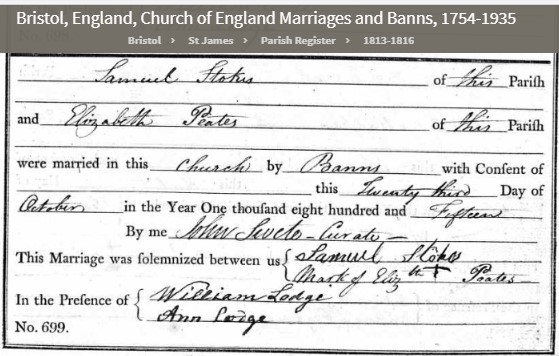 Bristol, England, Church of England Marriages and Banns, 1754-1935
Bristol > St James > Parish Register > 1813-1816
Samuel Stokes of this Parish
and Elizabeth Peates of this Parish
were married in this Church by Banns with Consent of
this Twenty third Day of
October in the Year One thousand eight hundred and Fifteen
By me John Swete - Curate -
This Marriage was solemnized between us { Samuel Stokes
Mark of Eliz th + Peates
In the Presence of { William Lodge
Ann Lodge
No. 699.